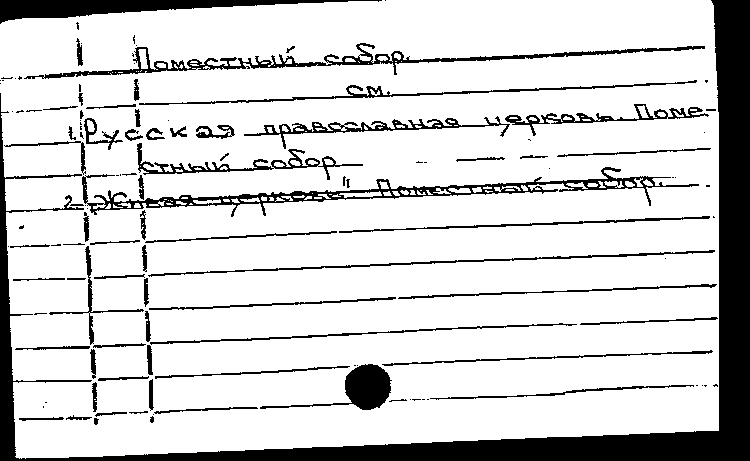 Поместный собор.
см.
1. Русская православная церковь. Поме-
стный собор
2. „Живая церковь" Поместный собор.